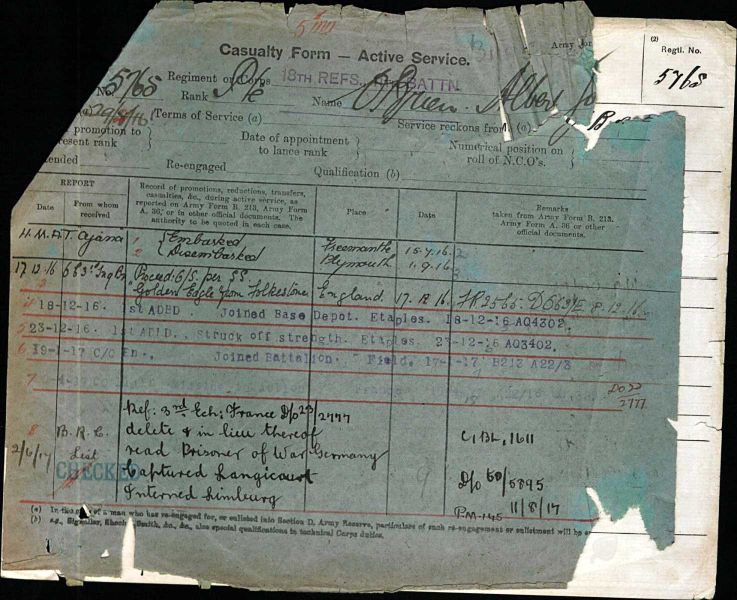 5 m
Casualty Form — Active Service.
Army
(2)
Regtl. No.
5768
No 5768
Regiment or Corps 18TH REFS. BATTN.
Rank Pte Name O'Brien Albert Jo
(a) 29/2/16 Terms of Service (a) Service reckons from (a)
promotion to present rank
Date of appointment to lance rank
Numerical position on roll of N.C.O's.
ended Re-engaged Qualification (b)
REPORT
Date
From whom received
Record of promotions, reductions, transfers, casualties, &c., during active service, as reported on Army Form B. 213, Army Form A. 36, or in other official documents. The authority to be quoted in each case.
Place
Date
Remarks taken from Army Form B. 213, Army Form A. 36 or other official documents.
H.M.A.T. Ajana 1 Embarked Freemantle 15.7.16
2 Disembarked Plymouth 1.9.16
17.12.16 Proceed O/S. per SS.
3 "Golden Eagle" from Folkestone England. 17.12.16
4 18-12-16. 1st ADBD. Joined Base Depot. Etaples. 18-12-16 AO4302.
5 23-12-16. 1st ADBD. Struck off strength. Etaples. 23-12-16 AO3402.
6 19-1-17 C/O Bn., Joined Battalion. Field. 17-1-17 B213 A22/3
7 DO 23
2777
Ref: 3rd Ech: France D/O 23/2777
8 B.R.C. delete & in lieu thereof C,BL,1611
2/6/17 List read Prisoner of War Germany
CHECKED Captured Langicourt D/O 50/5895
Interned Limburg PM 145 11/8/17
(a) In the case of a man who has re-engaged for, or enlisted into Section D. Army Reserve, particulars of such re-engagement or enlistment will be
(b) e.g., Signaller, Shoeing Smith, &c., &c., also special qualifications in technical Corps duties.